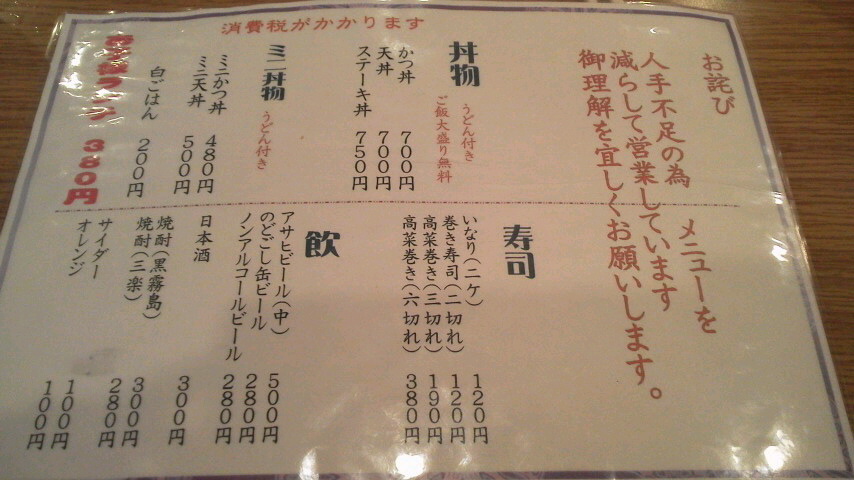 お詫び
人手不足の為 メニューを
減らして営業しています
御理解を宜しくお願いします。
消費税がかかります
丼物 うどん付き
ご飯大盛り無料
かつ丼 700円
天丼 700円
ステーキ丼 750円
ミニ丼物 うどん付き
ミニかつ丼 480円
ミニ天丼 500円
白ごはん 200円
お子様ランチ 380円
寿司
いなり(二ケ) 120円
巻き寿司(二切れ) 120円
高菜巻き(三切れ) 190円
高菜巻き(六切れ) 380円
飲
アサヒビール(中) 500円
のどごし缶ビール 280円
ノンアルコールビール 280円
日本酒 300円
焼酎(黒霧島) 300円
焼酎(三楽) 280円
サイダー 100円
オレンジ 100円